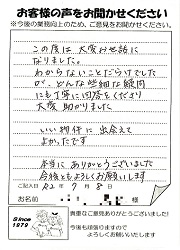 お客様の声をお聞かせください
※今後の業務向上のため、ご意見をお聞かせください。
この度は大変お世話に
なりました。
わからないことだらけでした
が、どんな些細な疑問
にも丁寧に回答をくださり
大変助かりました
いい物件に出会えて
よかったです
本当にありがとうございました
今後ともよろしくお願いします
ご記入日 R2年7月8日
お名前 様
Since
1979
貴重なご意見ありがとうございました!
今後も頑張りますので
よろしくお願いいたします